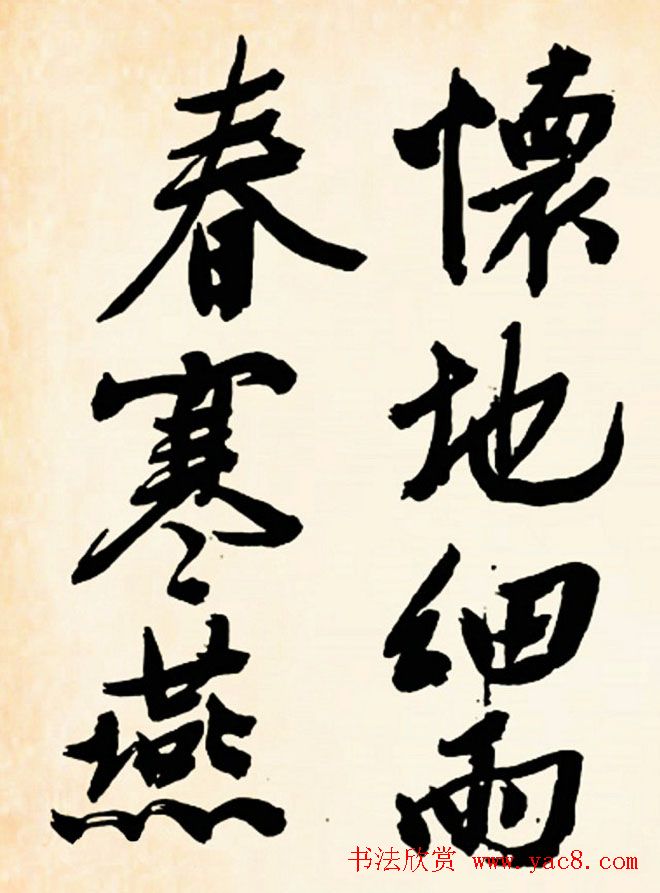 懷地細雨
春寒燕
书法欣赏 www.yac8.com